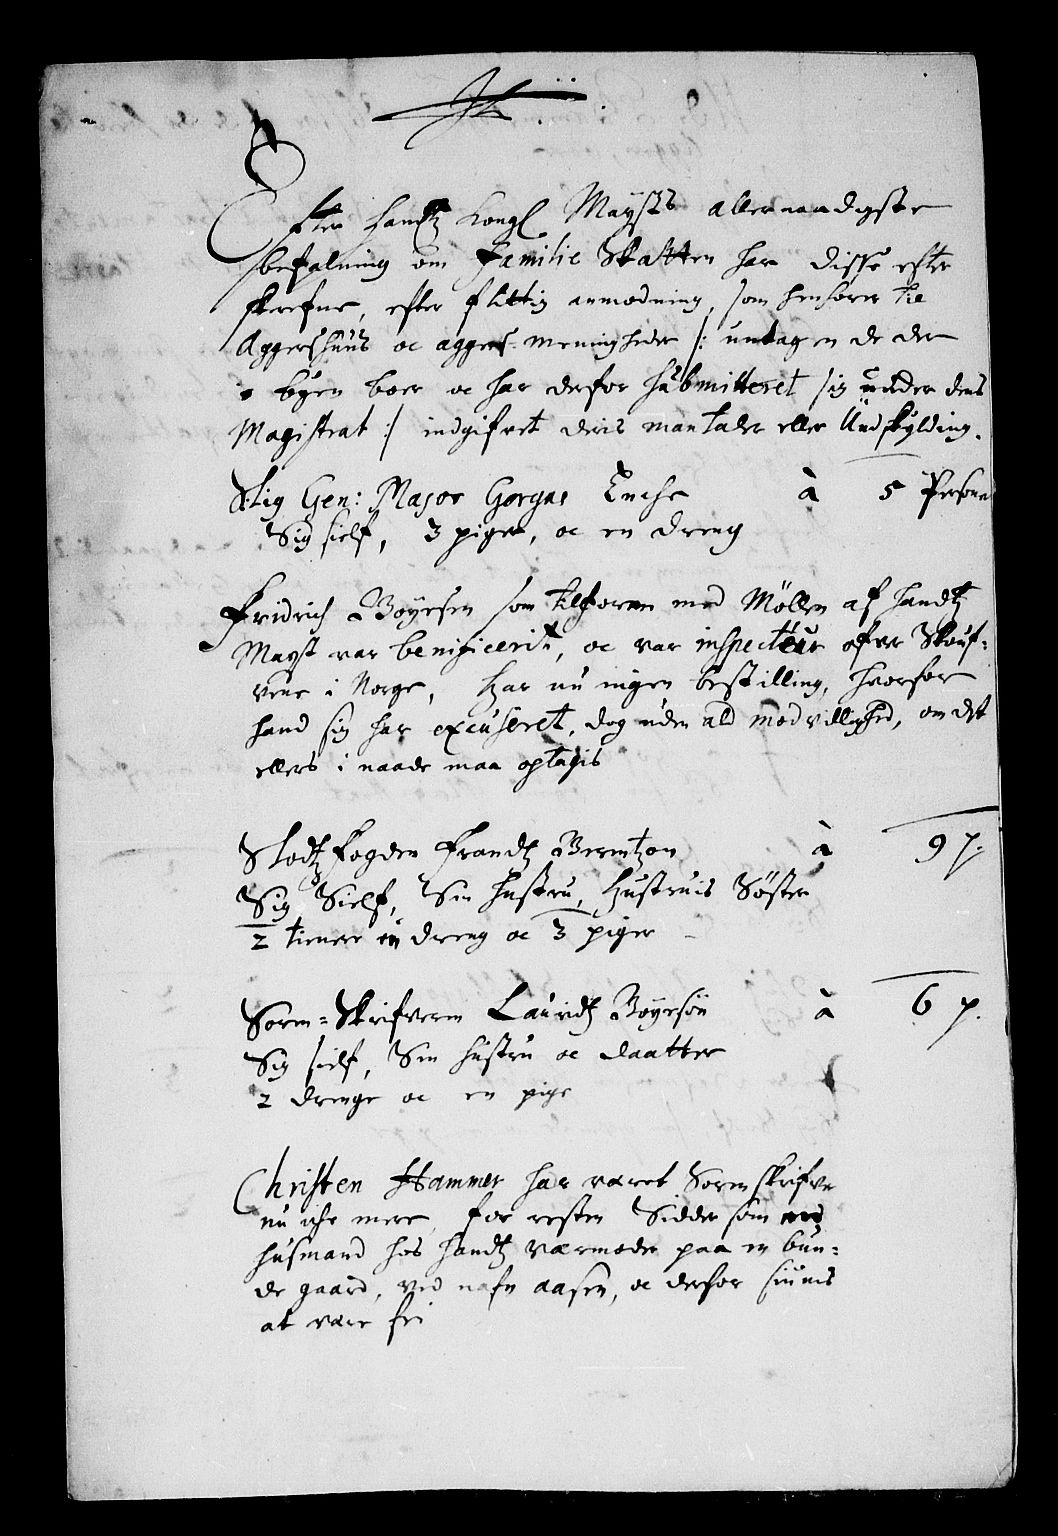 Efter handtz kongl Maysts allernaadigste
befalning om Familie Skatten har disse efter
skrefne, efter flittig anmodning, som henhører til
Aggershuus oc aggers-meningheder /: untagen de der
i byen boer oc har derfor submitteret sig under dens
Magistrat :/ indgifvet deris mantaler eller Undskylding.
Slig Gen: Major Gorgas Enche à 5 Persone
Sig sielf, 3 piger, oc en dreng
Fridrich Bøyesen som tilforen med Møllen af handtz
Mayst var benificerit, oc var inspecteur ofver Skouf-
vene i Norge, har nu ingen bestilling, hvorfore
hand sig har excuseret, dog uden ald modvillighed, om det
ellers i naade maa optagis
Slodtz fogden Frandtz Berntzon à 9 p:
Sig Sielf, Sin hustru, hustruis Søster
2 tienere en dreng oc 3 piger
Soren-Skrifveren Lauridtz Bøyesøn à 6 p.
Sig sielf, Sin hustru oc daatter
2 drenge oc en pige
Christen Hammer har veret Sorenskrifver
nu iche mere, for resten Sidder som
husmand hos handtz værmoder paa en bun-
de gaard, ved nafn aasen, oc derfor siunis
at være fri